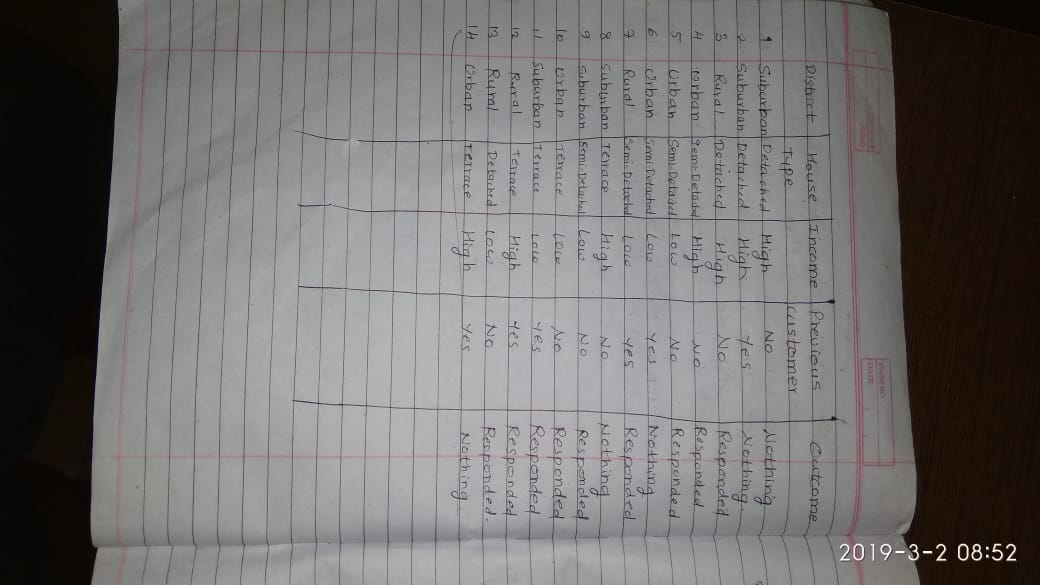 District House Income Previous Outcome
Type Customer
1 Suburban Detached High No Nothing
2 Suburban Detached High Yes Nothing
3 Rural Detached High No Responded
4 Urban Semi-Detached High No Responded
5 Urban Semi-Detached Low No Responded
6 Urban Semi-Detached Low Yes Nothing
7 Rural Semi-Detached Low Yes Responded
8 Suburban Terrace High No Nothing
9 Suburban Semi-Detached Low No Responded
10 Urban Terrace Low No Responded
11 Suburban Terrace Low Yes Responded
12 Rural Terrace High Yes Responded
13 Rural Detached Low No Responded.
14 Urban Terrace High Yes Nothing
PAGE NO
DATE:
2019-3-2 08:52